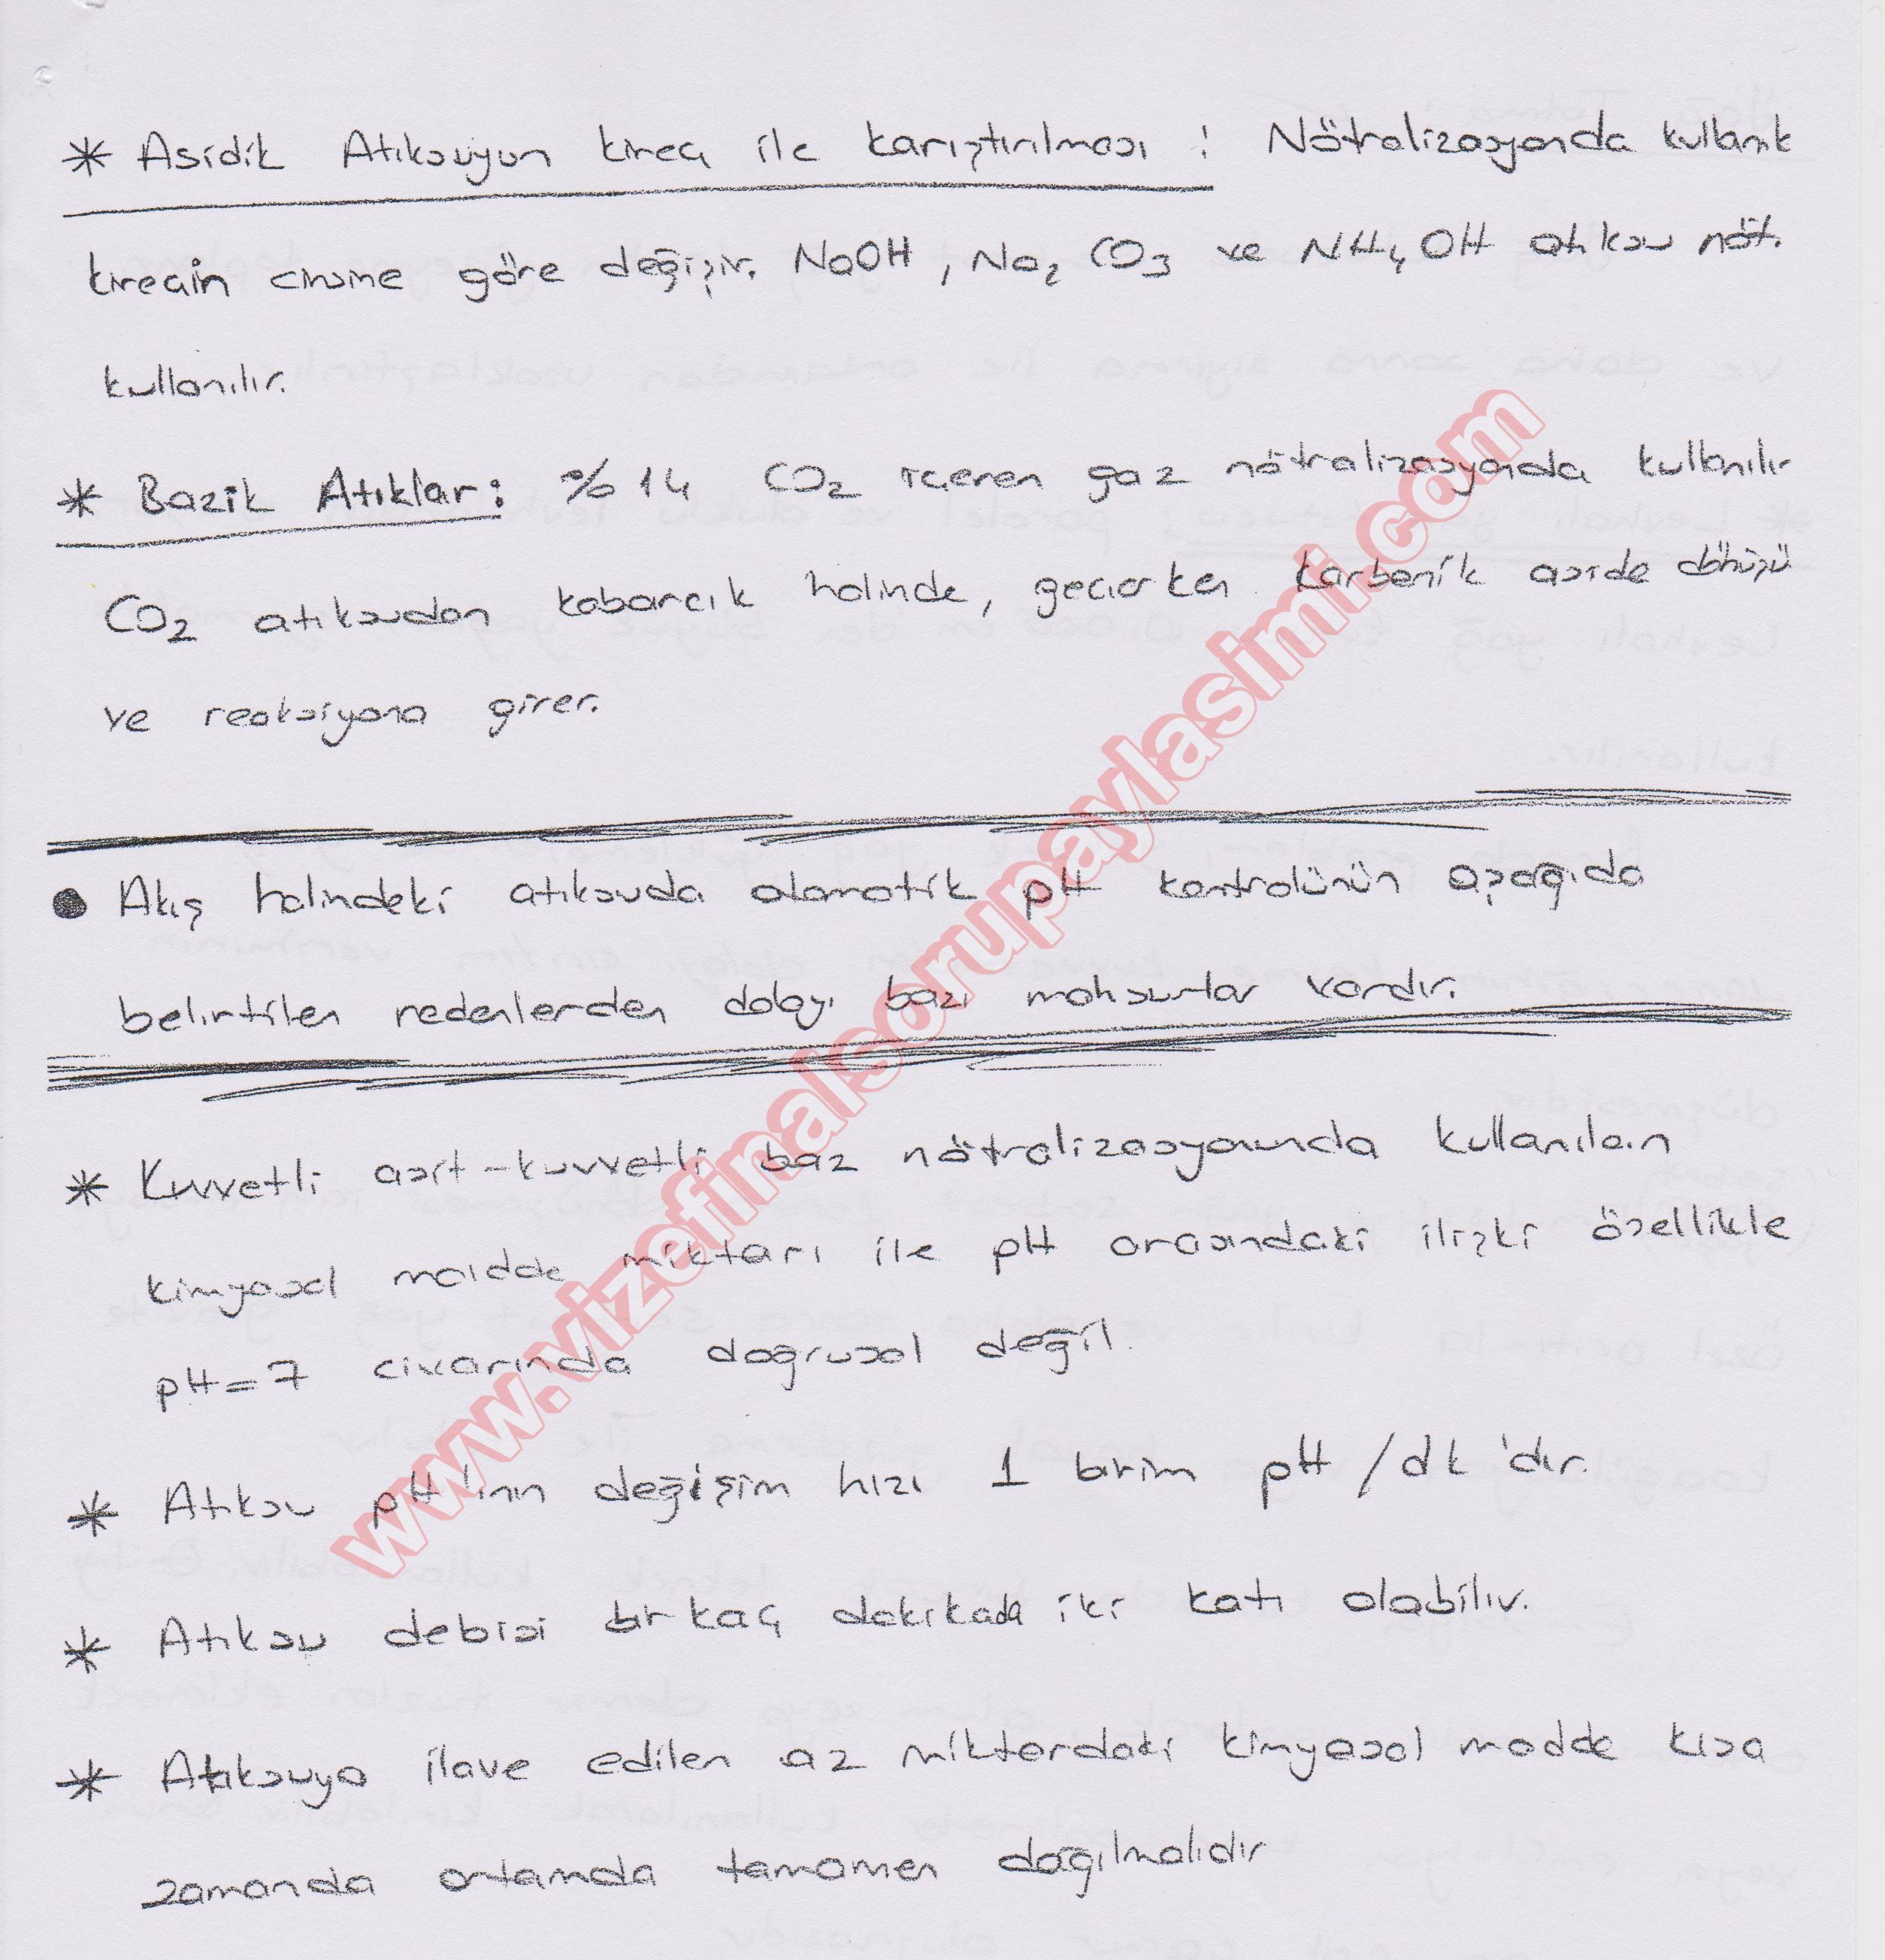 * Asidik Atıksuyun kireç ile karıştırılması : Nötralizasyonda kullanıl
kirecin cinsine göre değişir. NaOH, Na2 CO3 ve NH4OH atıksu nöt.
kullanılır.
* Bazik Atıklar: %14 CO2 içeren gaz nötralizasyonda kullanılır
CO2 atıksudan kabarcık halinde, geçerken karbonik aside dönüşü
ve reaksiyona girer.
• Akış halindeki atıksuda otomatik pH kontrolünün aşağıda
belirtilen nedenlerden dolayı bazı mahsurlar vardır.
* Kuvvetli asit-kuvvetli baz nötralizasyonunda kullanılan
kimyasal madde miktarı ile pH arasındaki ilişki özellikle
pH=7 civarında doğrusal değil.
* Atıksu pH'ının değişim hızı 1 birim pH /dk 'dır.
* Atıksu debisi bir kaç dakikada iki katı olabilir.
* Atıksuya ilave edilen az miktardaki kimyasal madde kısa
zamanda ortamda tamamen dağılmalıdır
www.vizefinalsorupaylasimi.com